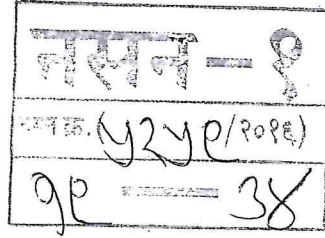 नसन - १
दस्त क्र. (५२५९/२०१६)
१९ - ३४